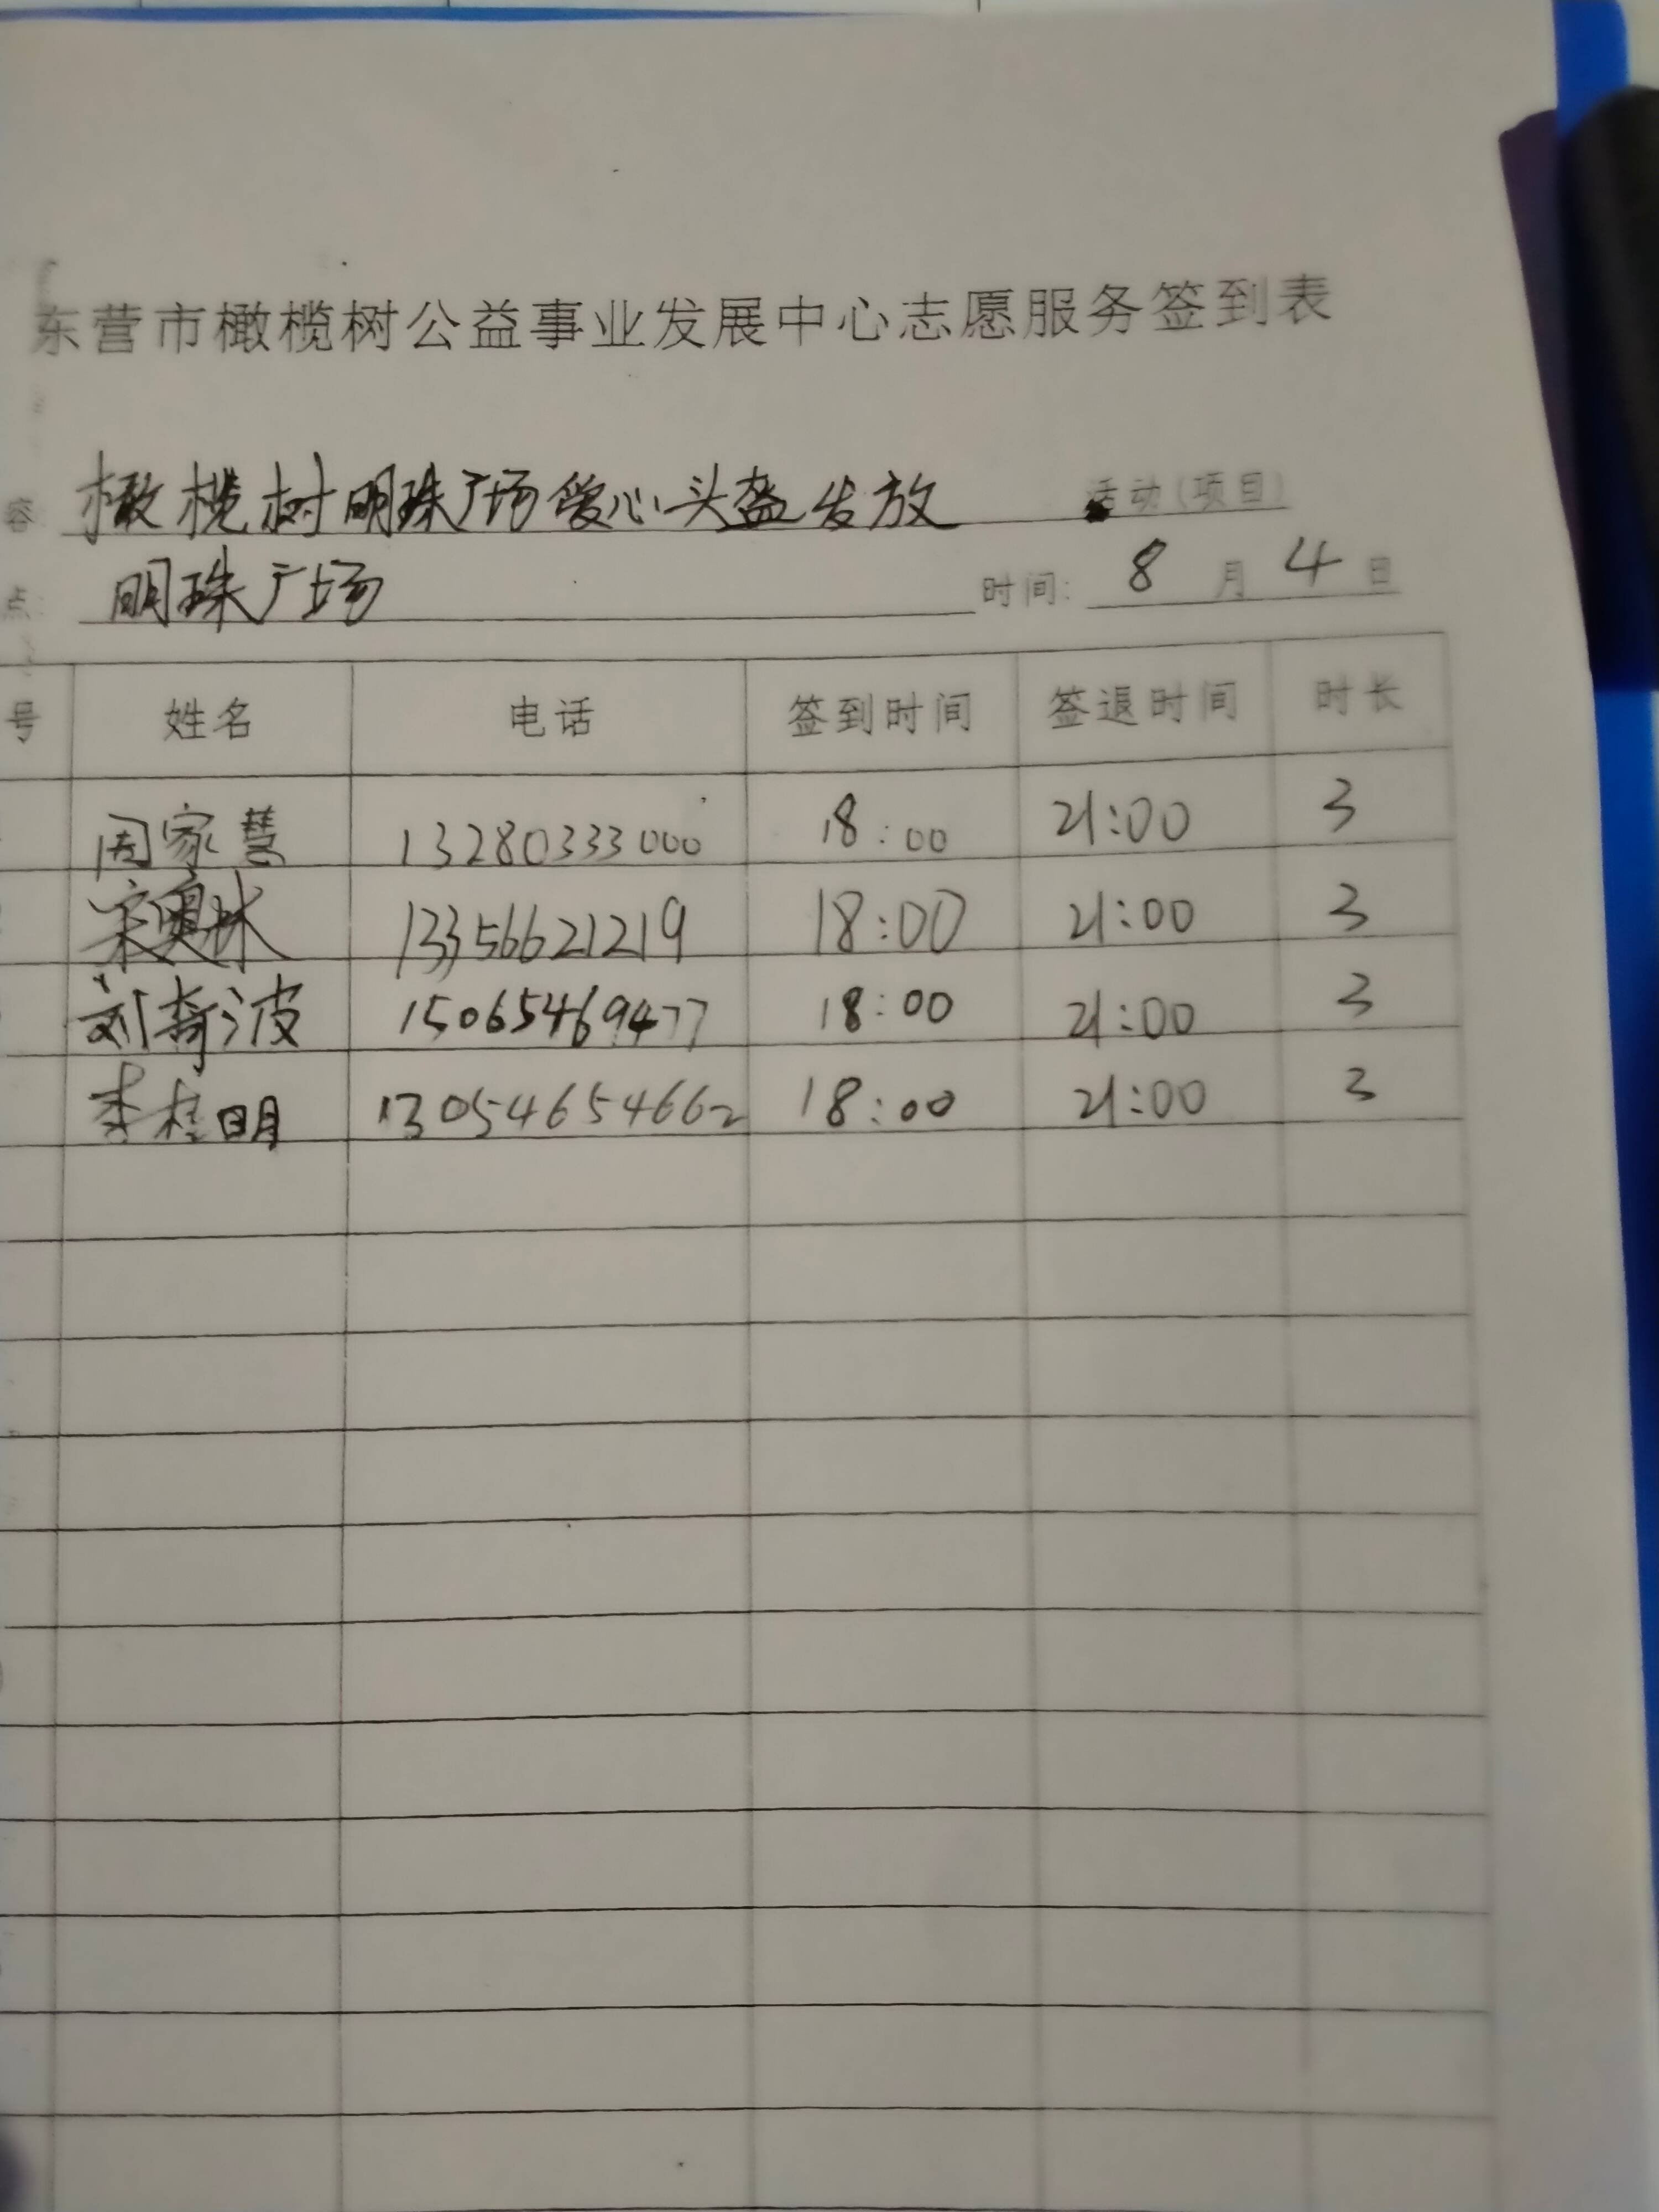 东营市橄榄树公益事业发展中心志愿服务签到表
容 橄榄树明珠广场爱心头盔发放 活动(项目)
点: 明珠广场 时间: 8 月 4 日
号 姓名 电话 签到时间 签退时间 时长
周家慧 13280333000 18:00 21:00 3
宋奥林 13356621219 18:00 21:00 3
刘奇波 15065469477 18:00 21:00 3
李桂明 13054654662 18:00 21:00 3